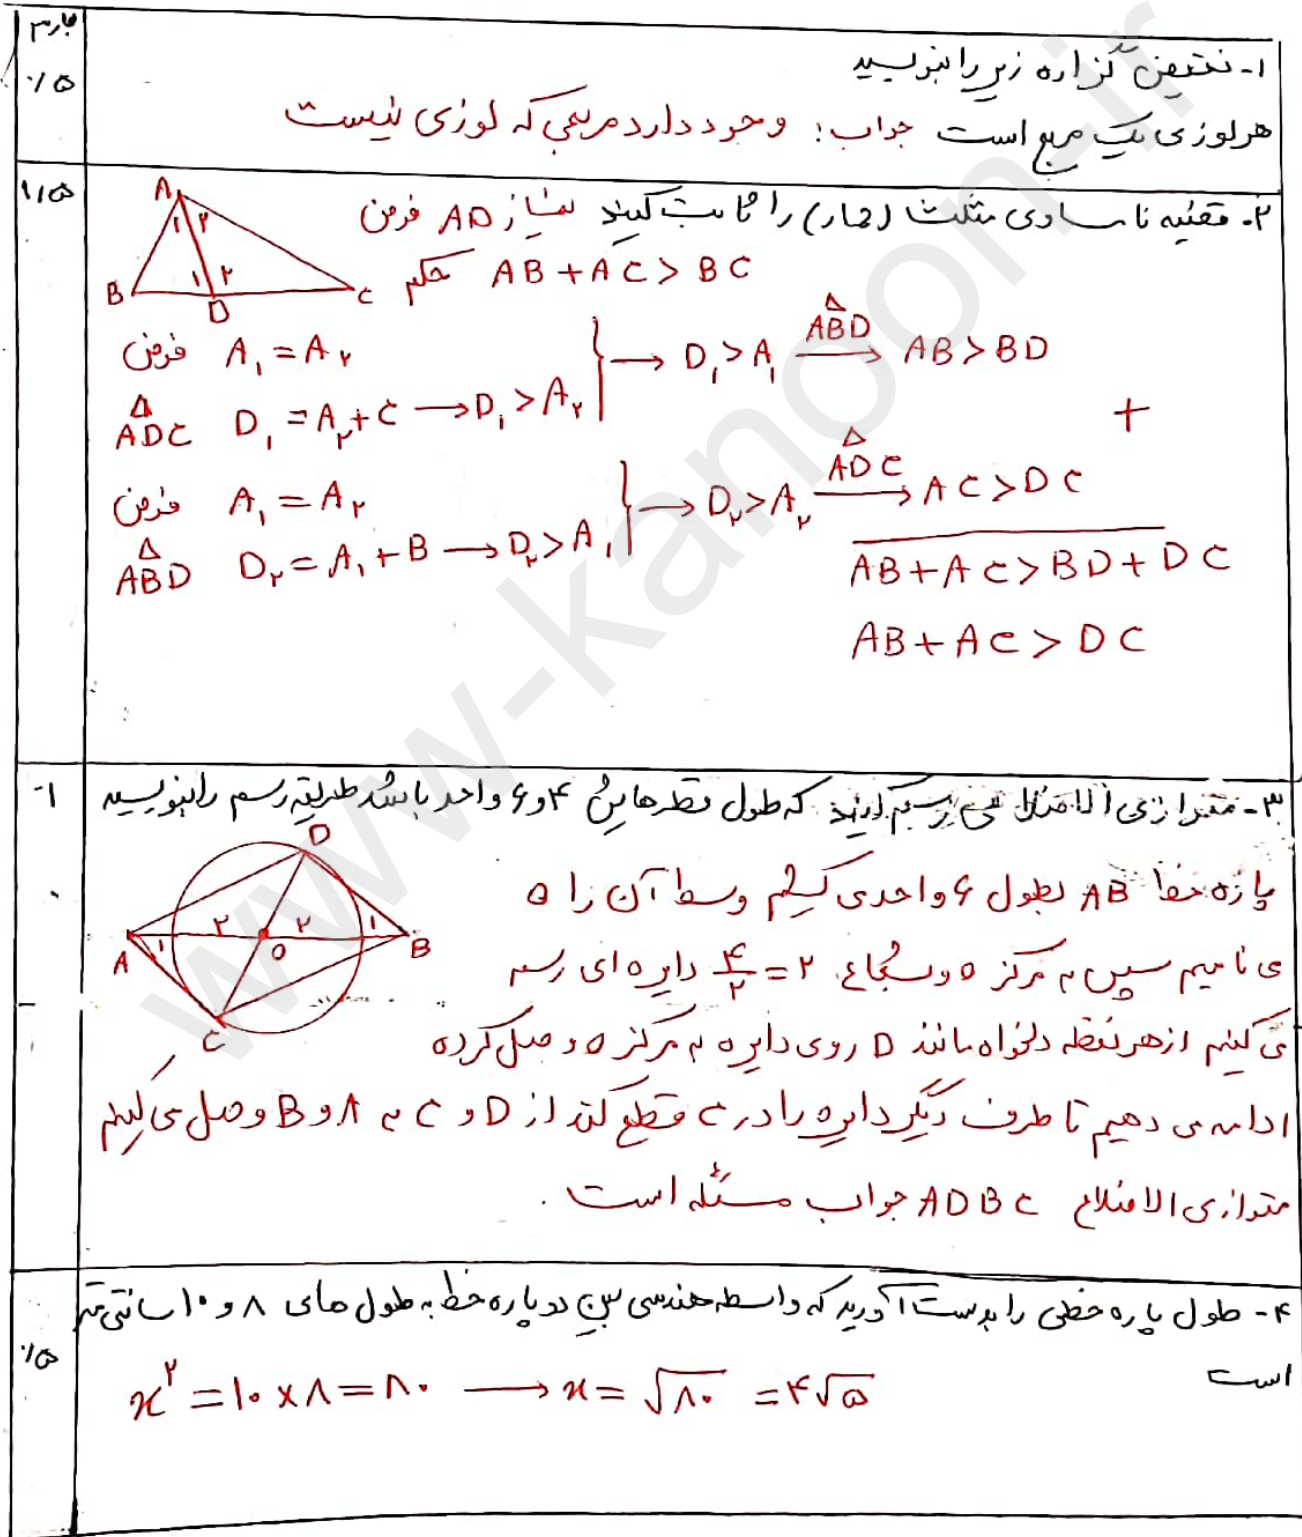 بارم
۱- نقیض گزاره زیر را بنویسید
۰/۵
هر لوزی یک مربع است جواب: وجود دارد مربعی که لوزی نیست
۱/۵
۲- قضیه نامساوی مثلث (حمار) را ثابت کنید نیمساز AD فرض
حکم AB + AC > BC
A
۱ ۲
۱ ۲
B D C
فرض A₁ = A₂
ADC D₁ = A₂ + C → D₁ > A₂
→ D₁ > A₁ ABD → AB > BD
+
فرض A₁ = A₂
ABD D₂ = A₁ + B → D₂ > A₁
→ D₂ > A₂ ADC → AC > DC
AB + AC > BD + DC
AB + AC > DC
۱
۳- متوازی الاضلاعی رسم کنید که طول قطرهایش ۴ و ۶ واحد باشد طریقه رسم را بنویسید
D
A ۱ ۲ O ۲ ۱ B
C
پاره خط AB بطول ۶ واحد می کشیم وسط آن را O
می نامیم سپس به مرکز O و شعاع ۲ = ۴/۲ دایره ای رسم
می کنیم از هر نقطه دلخواه مانند D روی دایره به مرکز O وصل کرده
ادامه می دهیم تا طرف دیگر دایره را در C قطع کند از D و C به A و B وصل می کنیم
متوازی الاضلاع ADBC جواب مسئله است .
۴- طول پاره خطی را بدست آورید که واسطه هندسی بین دو پاره خط به طول های ۸ و ۱۰ سانتی متر
۰/۵
است
x² = ۱۰ × ۸ = ۸۰ → x = √۸۰ = ۴√۵
www-kanoon-ir